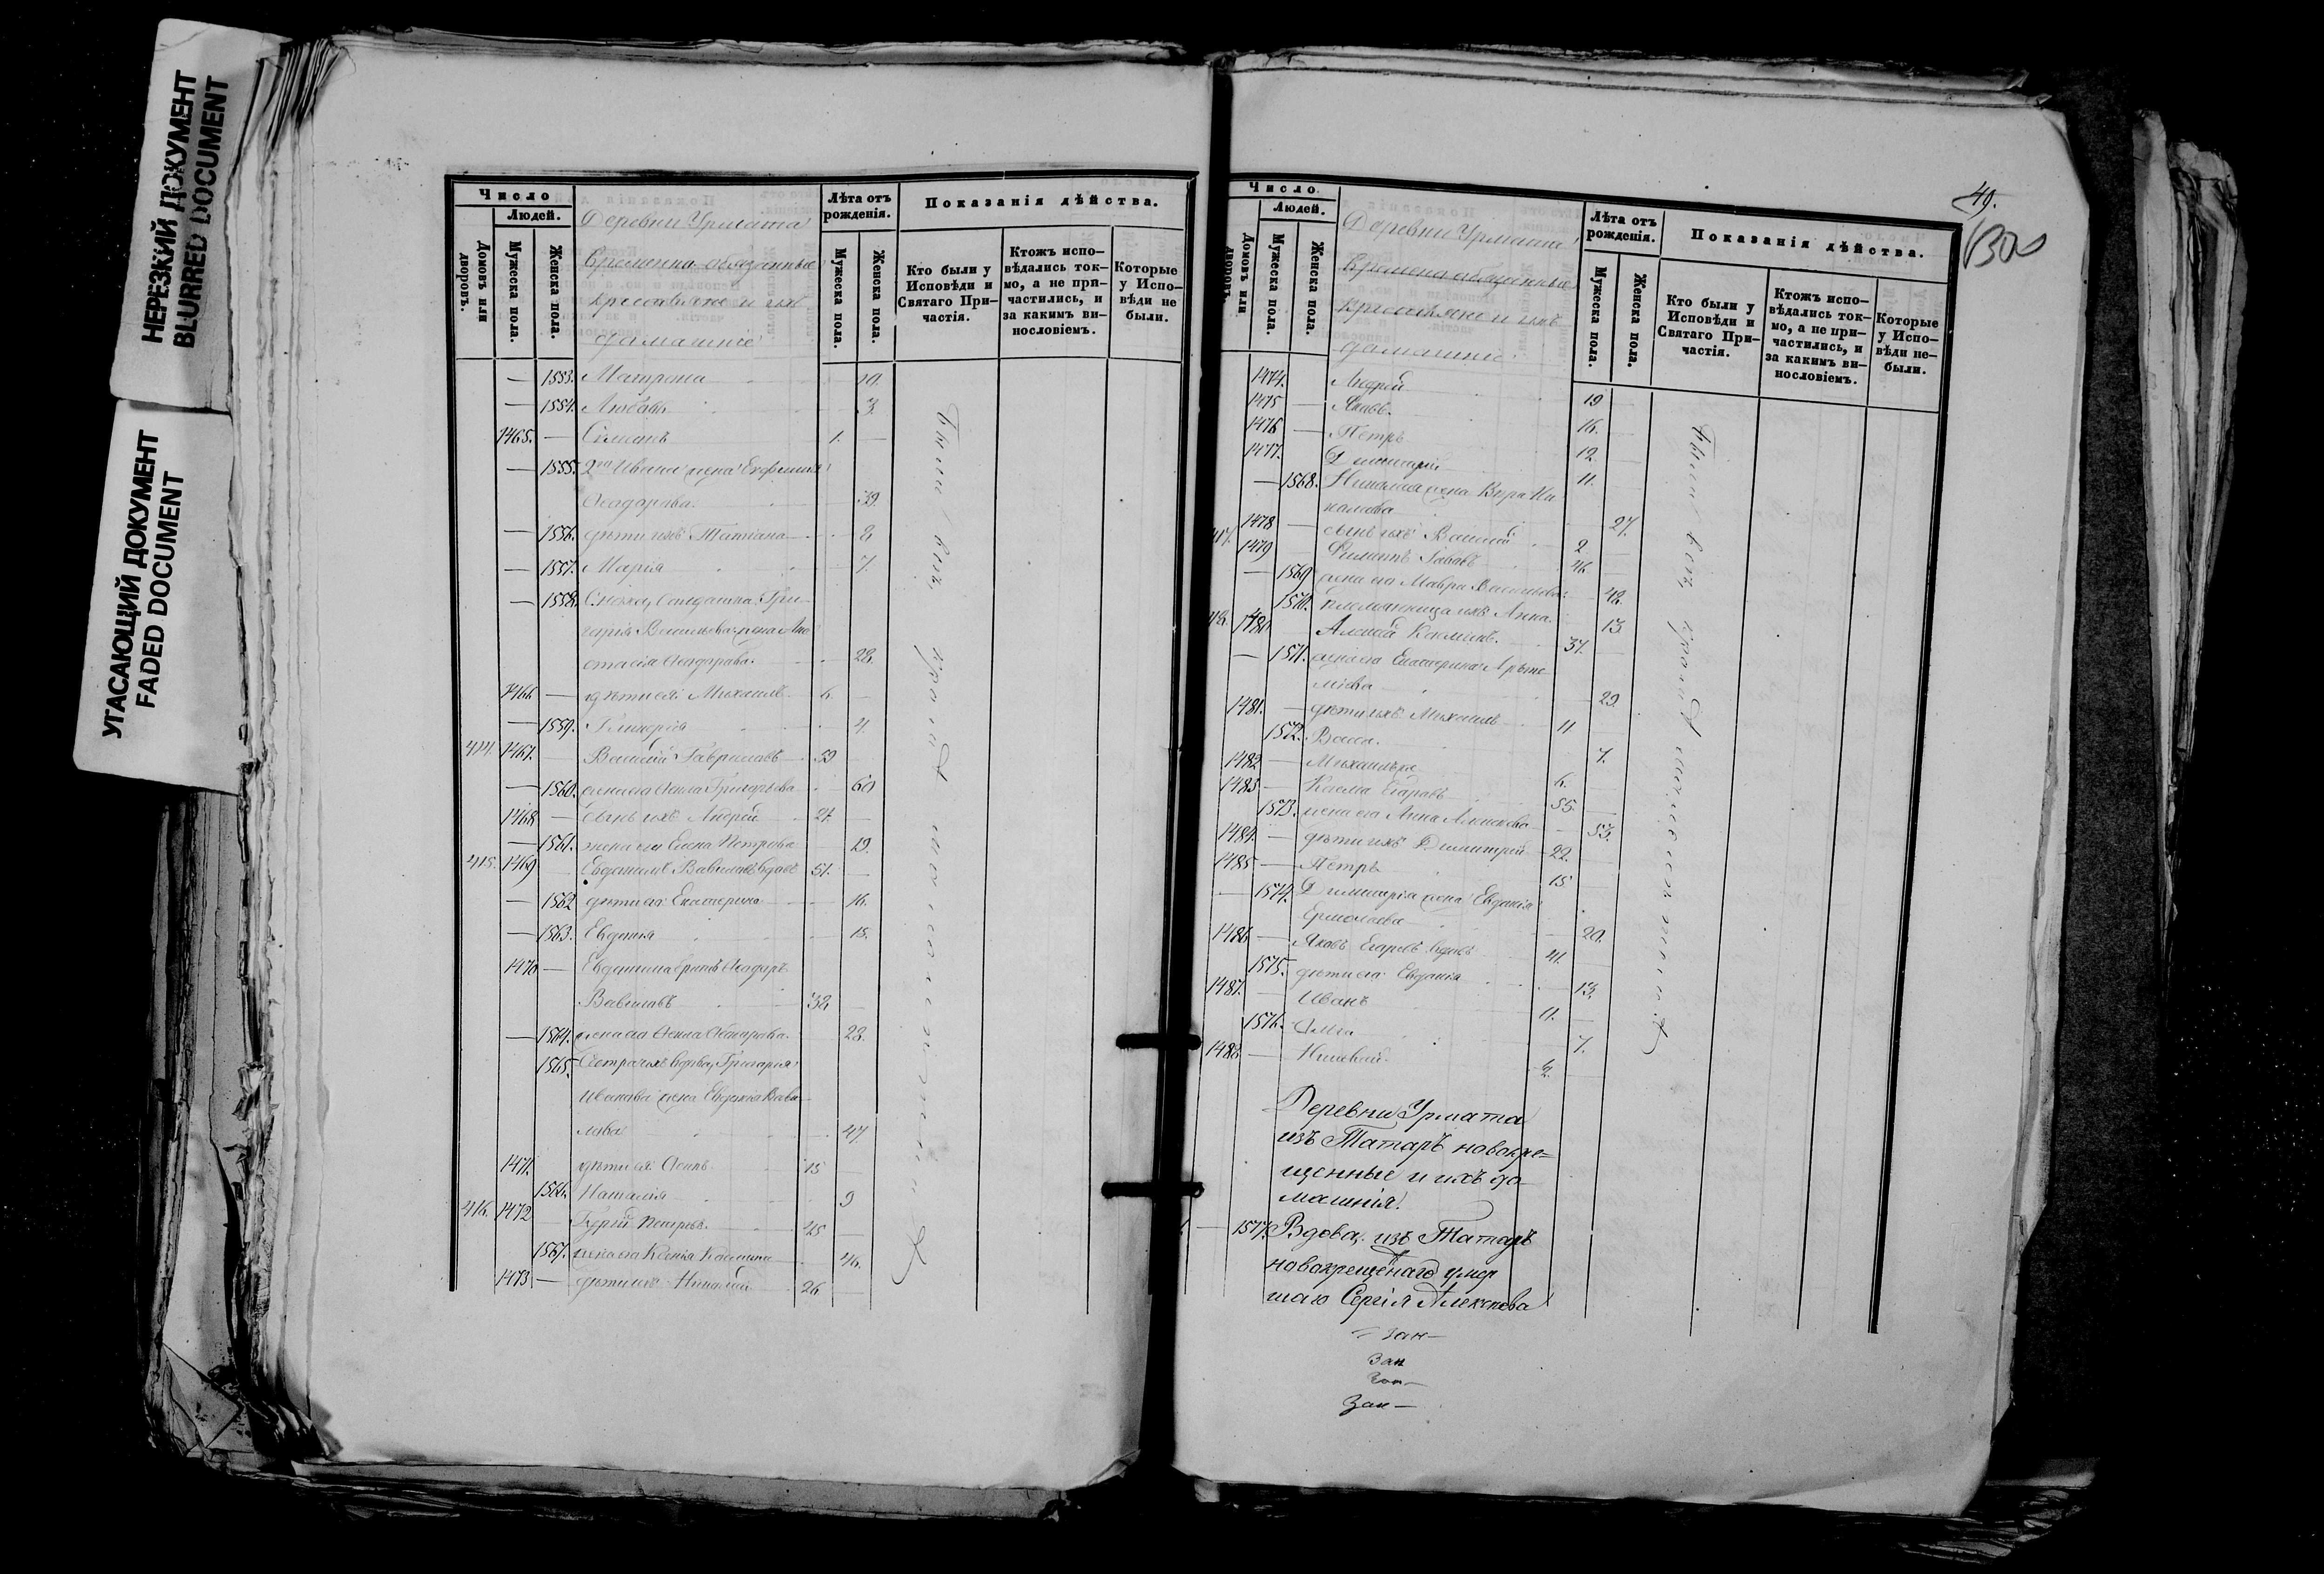 НЕРЕЗКИЙ ДОКУМЕНТ
BLURRED DOCUMENT
УГАСАЮЩИЙ ДОКУМЕНТ
FADED DOCUMENT
Число
Людей.
Домовъ или дворовъ.
Мужеска пола.
Женска пола.
Деревни Урмата
временно-обязанные
крестьяне и ихъ
домашніе
Лѣта отъ рожденія.
Мужеска пола.
Женска пола.
Показанія дѣйства.
Кто были у Исповѣди и Святаго Причастія.
Ктожъ исповѣдались токмо, а не причастились, и за какимъ винословіемъ.
Которые у Исповѣди не были.
— 1553. Матрона 10.
— 1554. Любовь 3.
1465. — Симеонъ 1. —
— 1555. 2го Ивана жена Евфимія
Ѳеодорова 39.
— 1556. дѣти ихъ Татіана 8
— 1557. Марія 7.
— 1558. Сноха, солдатка Гри-
горія Васильева жена Ана
стасія Ѳеодорова 28.
1466. — дѣти ея Михаилъ 6. —
— 1559. Гликерія 4.
414. 1467. — Василій Гавриловъ 59 —
— 1560. жена его Акила Григорьева 60
1468 — сынъ ихъ Андрей 27. —
— 1561. жена его Елена Петрова 19.
415. 1469 — Евдокимъ Вавиловъ вдовъ 51. —
— 1562 дѣти его Екатерина 16.
— 1563. Евдокія 15.
1470 — Евдокима братъ Ѳеодоръ
Вавиловъ 32. —
— 1564. жена его 28.
1565. Сестра ихъ вдова, Григорія
Иванова жена Евдокія Вави
лова 47
1471. дѣти ея Осипъ 15 —
1566. Наталія 9
416. 1472 Гурій Петровъ 45 —
1567. жена его Ксенія Космина 46.
1473 — дѣти ихъ Николай 26 —
Были
49.
Число.
Людей.
Домовъ или дворовъ.
Мужеска пола.
Женска пола.
Деревни Урмата
временно обязанные
крестьяне и ихъ
домашніе
Лѣта отъ рожденія.
Мужеска пола.
Женска пола.
Показанія дѣйства.
Кто были у Исповѣди и Святаго Причастія.
Ктожъ исповѣдались токмо, а не причастились, и за какимъ винословіемъ.
Которые у Исповѣди небыли.
1474. Андрей 19
1475 — Яковъ 16.
1476 — Петръ 12.
1477. Димитрій 11.
— 1568. Николая жена Вѣра Ни
колаева 27.
1478 — сынъ ихъ Василій 2.
417. 1479 Филиппъ Савовъ 46.
— 1569 жена его Мавра Васильева 42.
1570. племянница ихъ Анна 13.
418. 1480. Алексѣй Косминъ 37.
— 1571. жена его Екатерина Артемі
міева 29.
1481. — дѣти ихъ Михаилъ 11
1572. Васса 7.
1482 — Михаилъ 6.
1483 — Косма Егоровъ 55.
1573. жена его Анна Алексѣева 53.
1484. — дѣти ихъ Димитрій 22.
1485 — Петръ 15
— 1574. Димитрія жена Евдокія
Ермолаева 20.
1486 — Яковъ Егоровъ вдовъ 41.
1575. дѣти его Евдокія 13.
1487. — Иванъ 11.
1576. 7.
1488 — Николай 2.
Были
Деревни Урмата
изъ Татаръ новокре=
щенные и ихъ до
машнія.
— 1577. Вдова, изъ Татаръ
новокрещенаго умер
шаго Сергія Алексѣева
= зан—
зан
зан—
зан —